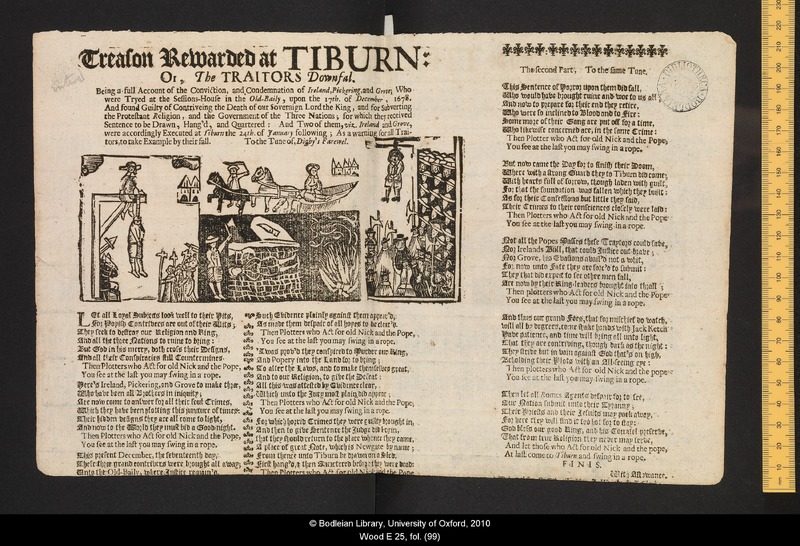 Treason Rewarded at TIBURN:
Or, The TRAITORS Downfal.
Being a full Account of the Conviction, and Condemnation of Ireland, Pickering, and Grove, Who
were Tryed at the Sessions-House in the Old-Baily, upon the 17th. of December, 1678.
And found Guilty of Contriveing the Death of our Soveraign Lord the King, and for Subverting
the Protestant Religion, and the Government of the Three Nations; for which they received
Sentence to be Drawn, Hang'd, and Quartered: And Two of them, viz, Ireland and Grove,
were accordingly Executed at Tiburn the 24th. of January following; As a warning for all Trai-
tors, to take Example by their fall. To the Tune of, Digby's Farewel.
LEt all Loyal Subjects look well to their Hits,
For Popish Contrivers are out of their Wits;
They seek to destroy our Religion and King,
And all the three Nations to ruine to bring:
But God in his mercy, doth cross their Designs,
And all their Conspiracies still Countermines:
Then Plotters who Act for old Nick and the Pope,
You see at the last you may swing in a rope.
Here's Ireland, Pickering, and Grove to make three,
Who have been all Brothers in iniquity;
Are now come to answer for all their foul Crimes,
Which they have been plotting this quantity of times:
Their hidden designs they are all come to light,
And now to the World they must bid a Goodnight.
Then Plotters who Act for old Nick and the Pope,
You see at the last you may swing in a rope.
This present December, the seventeenth day,
These three grand contrivers were brought all away;
Unto the Old-Baily, where Justice remain'd,
Such Evidence plainly against them appear'd,
As made them despair of all hopes to be clear'd.
Then Plotters who Act for old Nick and the Pope,
You see at the last you may swing in a rope.
'Twas prov'd they conspired to Murder our King,
And Popery into the Land for to bring;
To alter the Laws, and to make themselves great,
And to our Religion, to give the Defeat:
All this was attested by Evidence clear,
Which unto the Jury most plain did appear;
Then Plotters who Act for old Nick and the Pope,
You see at the last you may swing in a rope.
For which horrid Crimes they were guilty brought in,
And then to give Sentence the Judge did begin,
that they should return to the place whence they came,
A place of great Note, which is Newgate by name;
From thence unto Tiburn be drawn on a Sled,
First hang'd, & then Quartered before they were dead:
Then Plotters who Act for old Nick and the Pope
The second Part, To the same Tune.
This Sentence of Horror upon them did fall,
Who would have brought ruine and woe to us all;
And now to prepare for their end they retire,
Who were so inclined to Blood and to Fire:
Some more of their Gang are put off for a time,
Who likewise concerned are, in the same Crime:
Then Plotter who Act for old Nick and the Pope,
You see at the last you may swing in a rope.
But now came the Day for to finish their Doom,
Where with a strong Guard they to Tiburn did come;
With hearts full of sorrow, though laden with guilt,
For that the foundation was fallen which they built;
As for their Confessions but little they said,
Their Crimes to their consciences closely were laid:
Then Plotters who Act for old Nick and the Pope
You see at the last you may swing in a rope.
Not all the Popes Masses these Traytors could save,
Nor Irelands Bull, that could Justice out-brave;
Nor Grove, his Evasions avail'd not a whit,
For now unto Fate they are forc'd to submit:
They that did expect to see other men fall,
Are now by their Ring-leaders brought into thrall;
Then plotters who Act for old Nick and the Pope
You see at the last you may swing in a rope.
And thus our grand Foes, that for mischief do watch,
will all by degrees, come shake hands with Jack Ketch
Have patience, and time will bring all unto light,
That they are contriving, though dark as the night:
They strive but in vain against God that's on high,
Beholding their Plots with an All-seeing eye:
Then plotters who Act for old Nick and the Pope
You see at the last you may swing in a rope.
Then let all Romes Agents despair for to see,
Our Nation submit unto their Tyranny;
Their Priests and their Jesuits may pack away,
For here they will find it too hot for to stay:
God bless our good King, and his Council preserve,
That from true Religion they never may swerve,
And let those who Act for old Nick and the pope,
At last come to Tiburn and swing in a rope.
FINIS.
With Allowance.
© Bodleian Library, University of Oxford, 2010
Wood E 25, fol. (99)